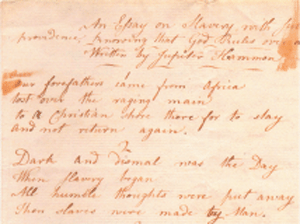 An Essay on Slavery with
providence knowing that God Rules over
Written by Jupiter Hammon
1
Our forefathers came from Africa
tost over the raging main
to a Christian shore there for to stay
and not return again.
2
Dark and Dismal was the Day
When slavery began
All humble thoughts were put away
Then slaves were made by Man.